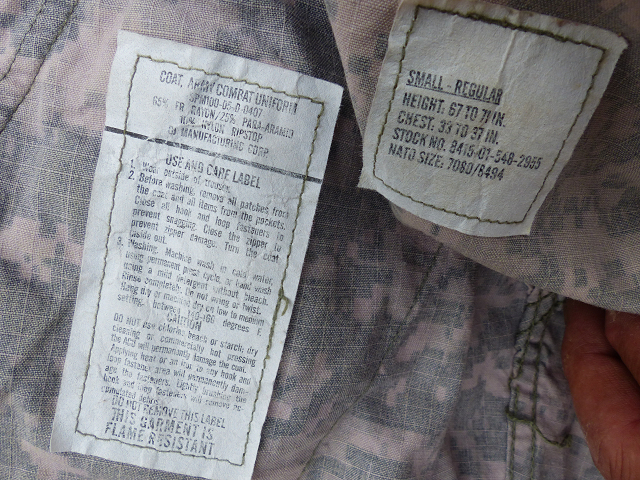 COAT, ARMY COMBAT UNIFORM
65% FR RAYON/25% PARA-ARAMID
10% NYLON RIPSTOP
MANUFACTURING CORP
USE AND CARE LABEL
1. Wear outside of trouser.
2. Before washing, remove all patches from
the coat and all items from the pockets.
Close all hook and loop fasteners to
prevent snagging. Close the zipper to
prevent zipper damage. Turn the coat
inside out.
3. Washing. Machine wash in cold water,
using permanent press cycle, or hand wash
using a mild detergent without bleach.
Rinse completely. Do not wring or twist.
Hang dry or machine dry on low to medium
setting, between degrees F.
CAUTION
DO NOT use chlorine bleach or starch; dry
cleaning or commercially hot pressing
the ACU will permanently damage the coat.
Applying heat or an iron to any hook and
loop fastener area will permanently dam-
age the fasteners. Lightly brushing the
hook and loop fasteners will remove ac-
cumulated debris.
DO NOT REMOVE THIS LABEL
THIS GARMENT IS
FLAME RESISTANT
SMALL - REGULAR
HEIGHT: 67 TO 71 IN.
CHEST: 33 TO 37 IN.
STOCK NO. 8415-01-548-2955
NATO SIZE: 7080/8494